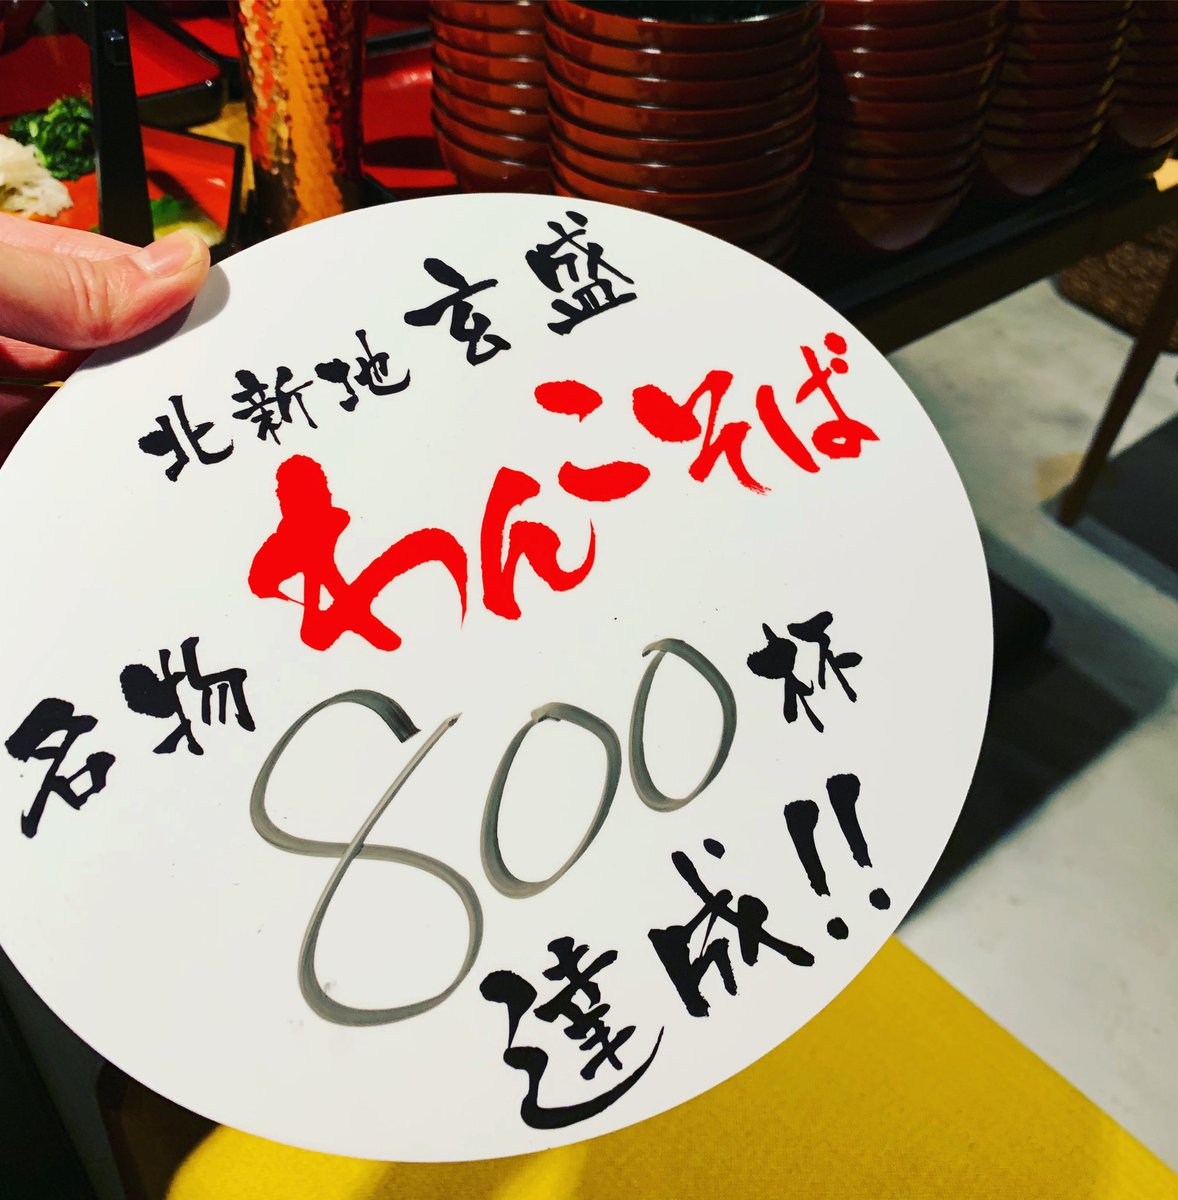 北新地 玄盛
名物 わんこそば
800杯
達成!!